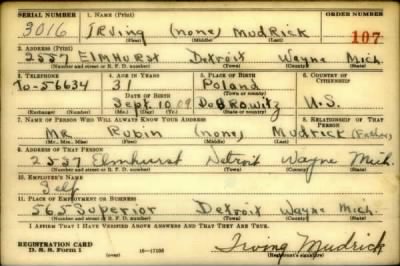 SERIAL NUMBER 1. NAME (Print) ORDER NUMBER
3016 IRving (none) MudRick 107
(First) (Middle) (Last)
2. ADDRESS (Print)
2557 ElmHurst Detroit Wayne Mich.
(Number and street or R. F. D. number) (Town) (County) (State)
3. TELEPHONE 4. AGE IN YEARS 5. PLACE OF BIRTH 6. COUNTRY OF CITIZENSHIP
To-56634 31 Poland
DATE OF BIRTH (Town or county)
Sept. 10, 09 DoBRowitz U.S.
(Exchange) (Number) (Mo.) (Day) (Yr.) (State or country)
7. NAME OF PERSON WHO WILL ALWAYS KNOW YOUR ADDRESS 8. RELATIONSHIP OF THAT PERSON
Mr. Rubin (none) Mudrick (Father)
(Mr., Mrs., Miss) (First) (Middle) (Last)
9. ADDRESS OF THAT PERSON
2557 Elmhurst Detroit Wayne Mich.
(Number and street or R. F. D. number) (Town) (County) (State)
10. EMPLOYER'S NAME
Self
11. PLACE OF EMPLOYMENT OR BUSINESS
565 Superior Detroit Wayne Mich.
(Number and street or R. F. D. number) (Town) (County) (State)
I AFFIRM THAT I HAVE VERIFIED ABOVE ANSWERS AND THAT THEY ARE TRUE.
REGISTRATION CARD
D. S. S. Form 1 16—17105 Irving Mudrick
(Registrant's signature)